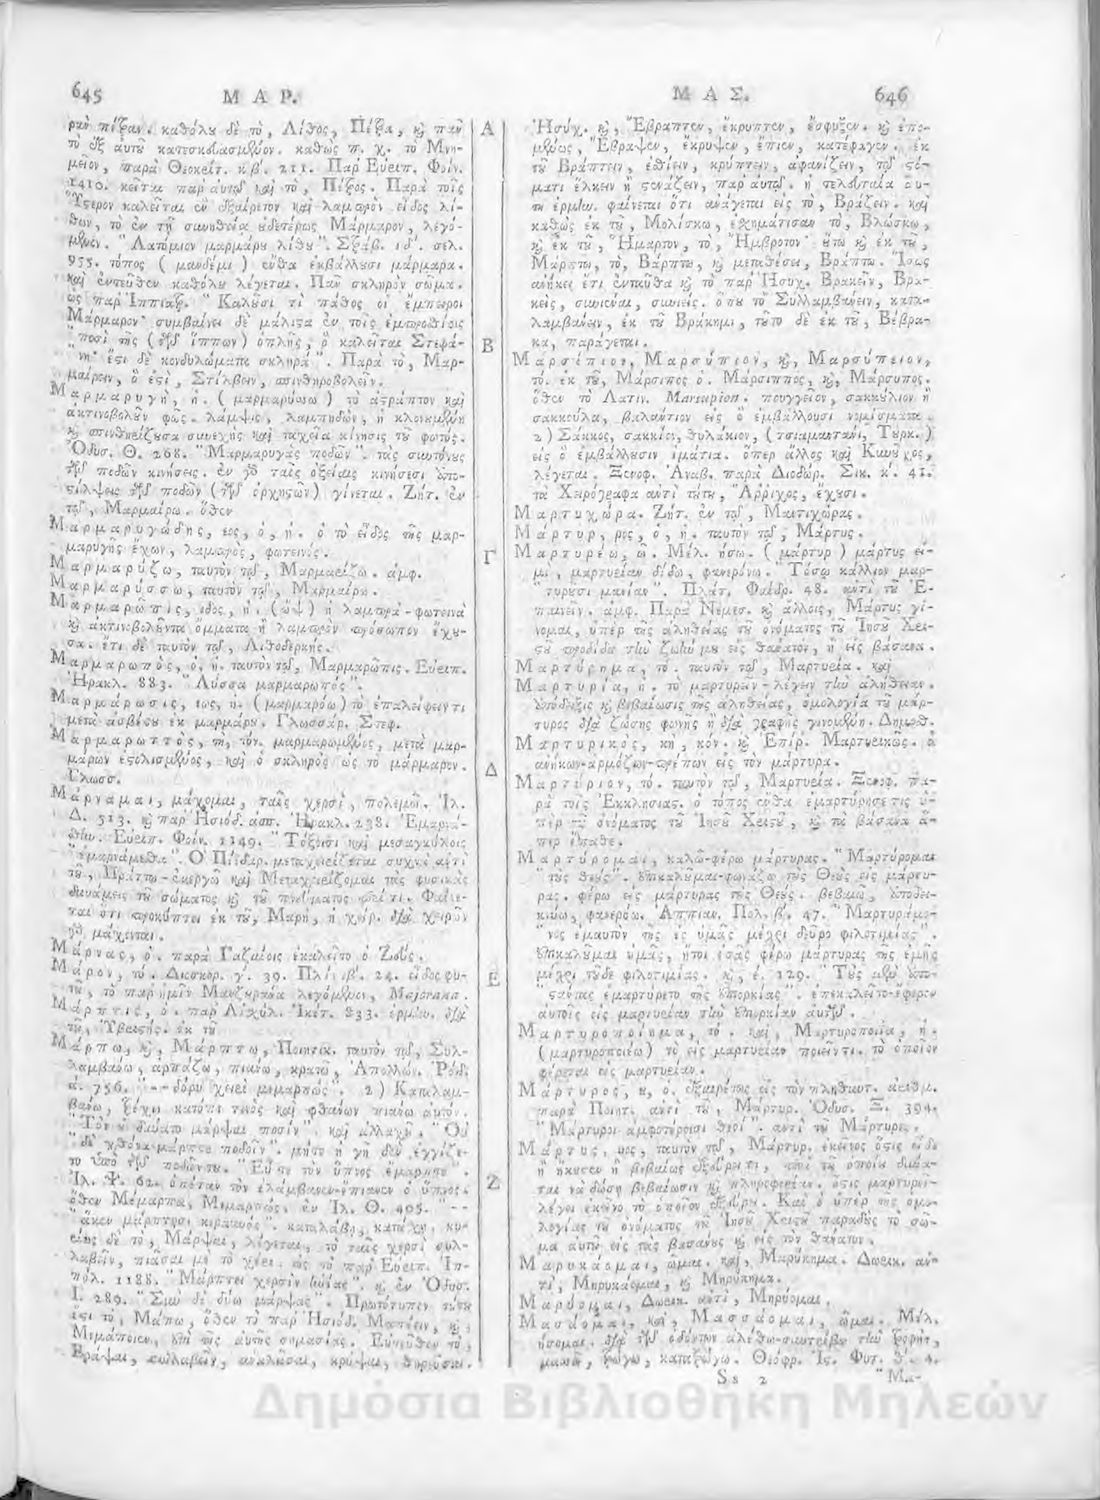 645 ΜΑΡ.
ΜΑΣ. 646
καθόλου δὲ τὸ, Λίθος, Πέτρα, καὶ πᾶν
τὸ ἐξ αὐτῶ κατεσκευασμένον. καθὼς π. χ. τὸ Μνη-
μεῖον, παρὰ Θεοκρίτ. κβ'. 211. Παρ' Εὐριπ. Φοίν.
1410. κεῖται παρ' αὐτῷ καὶ τὸ, Πέτρος. Παρὰ τοῖς
Ὕστερον καλεῖται ἐν ἐξαίρετον καὶ λαμπρὸν εἶδος λί-
θων, τὸ ἐν τῇ συνηθείᾳ οὐδετέρως Μάρμαρον, λεγό-
μενον. "Λατόμιον μαρμάρου λίθου". Στράβ. ιδ'. σελ.
955. τόπος ( μανδέμι ) ἔνθα ἐκβάλλουσι μάρμαρα.
καὶ ἐντεῦθεν καθόλου λέγεται. Πᾶν σκληρὸν σῶμα.
ὡς παρ' Ἱππιάτρ. "Καλοῦσι τὶ πάθος οἱ ἔμπειροι
Μάρμαρον· συμβαίνει δὲ μάλιστα ἐν τοῖς ἐμπροσθίοις
"ποσὶ τῆς (τῶν ἵππων) ὁπλῆς, ὃ καλεῖται Στεφά-
"νη· ἔστι δὲ κονδυλώματα σκληρά". Παρὰ τὸ, Μαρ-
μαίρειν, ὅ ἐστι, Στίλβειν, σπινθηροβολεῖν.
Μαρμαρυγή, ἡ. ( μαρμαρύσσω ) τὸ ἀστράπτον καὶ
ἀκτινοβολοῦν φῶς. λάμψις, λαμπηδών, ἡ κλονουμένη
καὶ σπινθηρίζουσα συνεχὴς καὶ ταχεῖα κίνησις τοῦ φωτός.
Ὀδυσ. Θ. 268. "Μαρμαρυγὰς ποδῶν". τὰς συντόνους
τῶν ποδῶν κινήσεις. ἐν γὰρ ταῖς ὀξείαις κινήσεσι ὑπο-
στίλψεις τῶν ποδῶν (τῶν ὀρχηστῶν) γίνεται. Ζήτ. ἐν
τῷ, Μαρμαίρω. ὅθεν
Μαρμαρυγώδης, εος, ὁ, ἡ. ὁ τὸ εἶδος τῆς μαρ-
μαρυγῆς ἔχων, λαμπρὸς, φωτεινός.
Μαρμαρύζω, ταυτὸν τῷ, Μαρμαρίζω. ἀμφ.
Μαρμαρύσσω, ταυτὸν τῷ, Μαρμαίρω.
Μαρμαρῶπις, ιδος, ἡ. (ὤψ) ἡ λαμπρὰ-φωτεινὰ
καὶ ἀκτινοβολοῦντα ὄμματα ἢ λαμπρὸν πρόσωπον ἔχου-
σα. ἔτι δὲ ταυτὸν τῷ, Λιθοδερκής.
Μαρμαρωπός, ὁ, ἡ. ταυτὸν τῷ, Μαρμαρῶπις. Εὐριπ.
Ἡρακλ. 883. "Λύσσα μαρμαρωπός".
Μαρμάρωσις, εως, ἡ. ( μαρμαρόω ) τὸ ἐπαλείφειν τι
μετὰ ἀσβέστου ἐκ μαρμάρου. Γλωσσάρ. Στεφ.
Μαρμαρωττὸς, τὴ, τόν. μαρμαρωμένος, μετὰ μαρ-
μάρων ἐστολισμένος, καὶ ὁ σκληρὸς ὡς τὸ μάρμαρον.
Γλωσσ.
Μάρναμαι, μάχομαι, ταῖς χερσὶ, πολεμῶ. Ἰλ.
Δ. 513. καὶ παρ' Ἡσιόδ. ἀσπ. Ἡρακλ. 238. Ἐμαρνά-
σθην. Εὐριπ. Φοίν. 1149. "Τόξοισι καὶ μεσαγκύλοις
"ἐμαρνάμεσθα". Ὁ Πίνδαρ. μεταχειρίζεται συχνὰ ἀντὶ
τοῦ, Πράττω-ἐνεργῶ καὶ Μεταχειρίζομαι τὰς φυσικὰς
δυνάμεις τοῦ σώματος καὶ τοῦ πνεύματος Φαίνε-
ται ὅτι προκύπτει ἐκ τοῦ, Μάρη, ἡ χείρ. διὰ χειρῶν
γὰρ μάχονται.
Μάρνας, ὁ. παρὰ Γαζαίοις ἐκαλεῖτο ὁ Ζεύς.
Μάρον, τό. Διοσκορ. γ'. 39. Πλίν. ιβ'. 24. εἶδος φυ-
τοῦ, τὸ παρ' ἡμῖν Μαντζουράνα λεγόμενον, Majorana.
Μάρπτις, ὁ. παρ' Αἰσχύλ. Ἱκέτ. 833. ἑρμην. διὰ
τοῦ, Ὑβριστής. ἐκ τοῦ
Μάρπω, καὶ, Μάρπτω, Ποιητικ. ταυτὸν τῷ, Συλ-
λαμβάνω, ἁρπάζω, πιάνω, κρατῶ, Ἀπολλών. Ῥόδ.
ά. 756. "-- δόρυ χειρὶ μεμαρπώς". 2) Καταλαμ-
βάνω, τρέχω κατόπι τινὸς καὶ φθάνων πιάνω αὐτόν.
"Τὸν οὐ δύνατο μάρψαι ποσίν". καὶ ἀλλαχῇ. "Οὐ
"δὲ χθόνα μάρπτε ποδοῖν". μήτε ἡ γῆ δὲν ἐγγίζε-
το ὑπὸ τῶν ποδῶν του. "Εὖτε τὸν ὕπνος ἔμαρπτε".
Ἰλ. Ψ. 62. ὁπόταν τὸν ἐλάμβανεν-ἔπιανεν ὁ ὕπνος.
ὅθεν Μέμαρπα, Μεμαρπώς. ἐν Ἰλ. Θ. 405. "--
"ἅκεν μάρπτῃσι κεραυνός". καταλάβῃ, κατέχῃ. κυ-
ρίως δὲ τὸ, Μάρψαι, λέγεται, τὸ ταῖς χερσὶ συλ-
λαβεῖν, πιάσαι μὲ τὸ χέρι. ὡς τὸ παρ' Εὐριπ. Ἱπ-
πόλ. 1188. "Μάρπτει χερσὶν ἡνίας". καὶ ἐν Ὀδυσ.
Ι. 289. "Σὺν δὲ δύω μάρψας". Πρωτότυπον τούτου
ἐστι τὸ, Μάπω, ὅθεν τὸ παρ' Ἡσιόδ. Μαπέειν, καὶ,
Μεμάποιεν, ἐπὶ τῆς αὐτῆς σημασίας. Ἐντεῦθεν τὸ,
Βράψαι, συλλαβεῖν, ἀναλῶσαι, κρύψαι, θηρεῦσαι.
Α
Β
Γ
Δ
Ε
Ζ
Ἡσύχ. καὶ, Ἔβραπτεν, ἔκρυπτεν, ἔσφυξεν. καὶ ἑπο-
μένως, Ἔβραψεν, ἔκρυψεν, ἔπιεν, κατέφαγεν. ἐκ
τοῦ Βράπτειν, ἐσθίειν, κρύπτειν, ἀφανίζειν, τῷ στό-
ματι ἕλκειν ἢ στενάζειν, παρ' αὐτῷ. ἡ τελευταία αὕ-
τη ἑρμην. φαίνεται ὅτι ἀνάγεται εἰς τὸ, Βράζειν. καὶ
καθὼς ἐκ τοῦ, Μολίσκω, ἐσχημάτισαν τὸ, Βλώσκω,
καὶ ἐκ τοῦ, Ἥμαρτον, τὸ, Ἤμβροτον· οὕτω καὶ ἐκ τοῦ,
Μάρπτω, τὸ, Βάρπτω, καὶ μεταθέσει, Βράπτω. Ἴσως
ἀνήκει ἔτι ἐνταῦθα καὶ τὸ παρ' Ἡσυχ. Βρακεῖν, Βρα-
κεὶς, συνιέναι, συνιείς. ὅπου τὸ Συλλαμβάνειν, κατα-
λαμβάνειν, ἐκ τοῦ Βράκημι, τοῦτο δὲ ἐκ τοῦ, Βέβρα-
κα, παράγεται.
Μαρσίπιον, Μαρσύπιον, καὶ, Μαρσύπειον,
τό. ἐκ τοῦ, Μάρσιπος ὁ. Μάρσιππος, καὶ, Μάρσυπος.
ὅθεν τὸ Λατιν. Marsupion. πουγγεῖον, σακκούλιον ἢ
σακκούλα, βαλάντιον εἰς ὃ ἐμβάλλουσι νομίσματα.
2) Σάκκος, σακκίον, θυλάκιον, (τσιαμαντανὶ, Τουρκ.)
εἰς ὃ ἐμβάλλουσιν ἱμάτια. ὅπερ ἄλλος καὶ
λέγεται. Ξενοφ. Ἀναβ. παρὰ Διοδώρ. Σικ. κ'. 41.
τὰ Χειρόγραφα ἀντὶ τούτου, Ἄρριχος, ἔχουσι.
Μαρτυχώρα. Ζήτ. ἐν τῷ, Μαντιχώρας.
Μάρτυρ, ρος, ὁ, ἡ. ταυτὸν τῷ, Μάρτυς.
Μαρτυρέω, ῶ. Μέλ. ήσω. ( μάρτυρ ) μάρτυς εἰ-
μι, μαρτυρίαν δίδω, φανερόνω. "Τόσῳ κάλλιον μαρ-
"τυροῦσι μανίαν". Πλάτ. Φαίδρ. 48. ἀντὶ τοῦ Ἐ-
παινεῖν. ἀμφ. Παρὰ Νέμεσ. καὶ ἄλλοις, Μάρτυς γί-
νομαι, ὑπὲρ τῆς ἀληθείας τοῦ ὀνόματος τοῦ Ἰησοῦ Χρι-
στοῦ προδίδω τὴν ζωήν μου εἰς θάνατον, ἢ εἰς βάσανα.
Μαρτύρημα, τό. ταυτὸν τῷ, Μαρτυρία. καὶ
Μαρτυρία, ἡ. τὸ μαρτυρεῖν-λέγειν τὴν ἀλήθειαν.
ἀπόδειξις καὶ βεβαίωσις τῆς ἀληθείας, ὁμολογία τοῦ μάρ-
τυρος διὰ ζώσης φωνῆς ἢ διὰ γραφῆς γινομένη. Δημοσθ.
Μαρτυρικὸς, κὴ, κόν. καὶ Ἐπίρ. Μαρτυρικῶς. ὁ
ἀνήκων-ἁρμόζων-πρέπων εἰς τὸν μάρτυρα.
Μαρτύριον, τό. ταυτὸν τῷ, Μαρτυρία. Ξενοφ. πα-
ρὰ τοῖς Ἐκκλησιας. ὁ τόπος ἔνθα ἐμαρτύρησέ τις ὑ-
πὲρ τοῦ ὀνόματος τοῦ Ἰησοῦ Χριστοῦ, καὶ τὰ βάσανα ἅ-
περ ἔπαθε.
Μαρτύρομαι, καλῶ-φέρω μάρτυρας. "Μαρτύρομαι
"τοὺς θεούς". ἐπικαλοῦμαι-φωνάζω τοὺς Θεοὺς εἰς μάρτυ-
ρας. φέρω εἰς μάρτυρας τοὺς Θεούς. βεβαιῶ, ἀποδει-
κνύω, φανερόω. Αππιαν. Πολ. β'. 47. "Μαρτυράμε-
"νος ἐμαυτὸν τῆς ἐς ὑμᾶς μέχρι δεῦρο φιλοτιμίας".
ἐπικαλοῦμαι ὑμᾶς, ἤτοι ἐσᾶς φέρω μάρτυρας τῆς ἐμῆς
μέχρι τοῦδε φιλοτιμίας. καὶ, έ. 129. "Τοὺς μὲν ἀπο-
"στάντας ἐμαρτύρετο τῆς ἐπιορκίας". ἐπεκαλεῖτο-ἔφερεν
αὐτοῖς εἰς μαρτυρίαν τὴν ἐπιορκίαν αὐτῶν.
Μαρτυροποίημα, τό. καὶ, Μαρτυροποιΐα, ἡ.
(μαρτυροποιέω) τὸ εἰς μαρτυρίαν ποιεῖν τι. τὸ ὁποῖον
φέρεται εἰς μαρτυρίαν.
Μάρτυρος, ου, ὁ. ἐξαιρέτως εἰς τὸν πληθυντ. ἀριθμ.
παρὰ Ποιητ. ἀντὶ τοῦ, Μάρτυρ. Ὀδυσ. Ξ. 394.
"Μάρτυροι ἀμφοτέροισι θεοί". ἀντὶ τοῦ Μάρτυρες.
Μάρτυς, υρος, ταυτὸν τῷ, Μάρτυρ. ἐκεῖνος ὅστις εἶδε
ἢ ἤκουσεν ἢ βεβαίως ἐξεύρει τι, ἀπὸ τὸ ὁποῖον δύνα-
ται νὰ δώσῃ βεβαίωσιν καὶ πληροφορίαν. ὅστις μαρτυρεῖ-
λέγει ἐκεῖνο τὸ ὁποῖον ἐξεύρει. Καὶ ὁ ὑπὲρ τῆς ὁμο-
λογίας τοῦ ὀνόματος τοῦ Ἰησοῦ Χριστοῦ παραδοὺς τὸ σῶ-
μα αὑτοῦ εἰς τὰς βασάνους καὶ εἰς τὸν θάνατον.
Μαρυκάομαι, ῶμαι. καὶ, Μαρύκημα. Δωρικ. ἀν-
τὶ, Μηρυκάομαι, καὶ Μηρύκημα.
Μαρύομαι, Δωρικ. ἀντὶ, Μηρύομαι.
Μασάομαι, καὶ, Μασσάομαι, ῶμαι. Μέλ.
ήσομαι. διὰ τῶν ὀδόντων ἀλέθω-συντρίβω τὴν τροφὴν,
μασσῶ, τρώγω, κατατρώγω. Θεόφρ. Ἱς. Φυτ. δ'. 4.
Ss 2 "Μα-
Δημόσια Βιβλιοθήκη Μηλεών